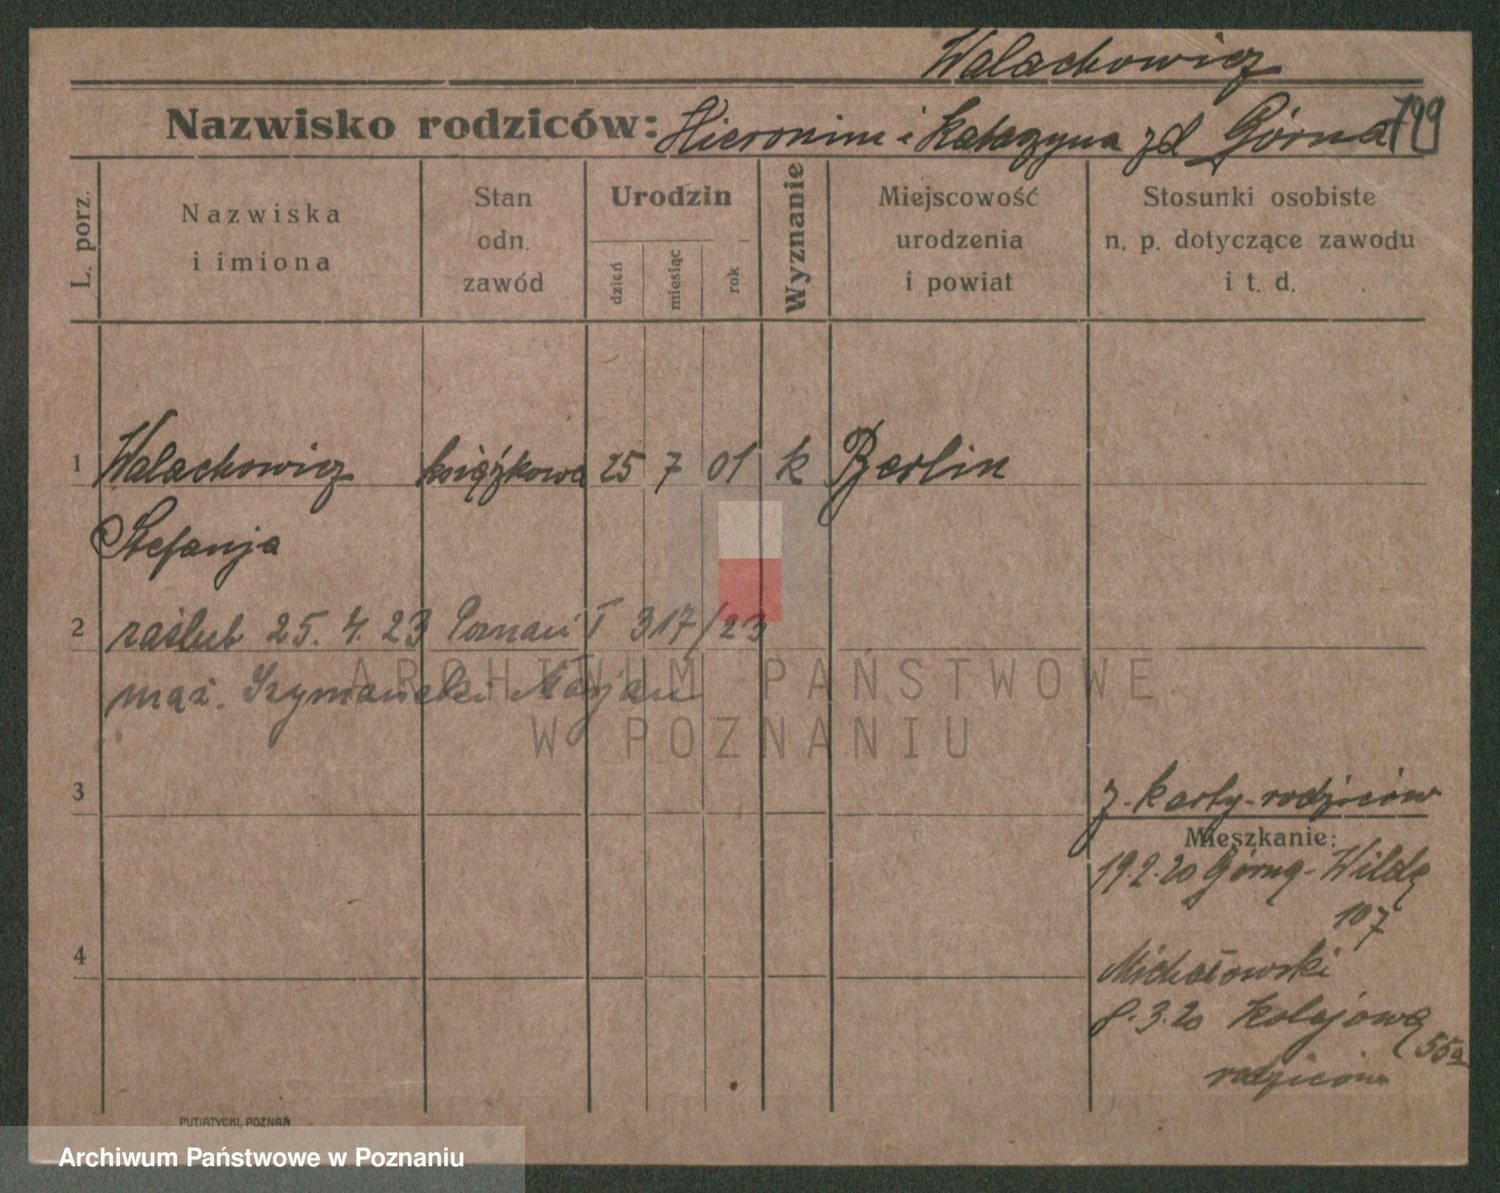 Walachowicz
Nazwisko rodziców: Hieronim i Katarzyna zd Górna 199
L. porz.
Nazwiska
i imiona
Stan
odn.
zawód
Urodzin
dzień
miesiąc
rok
Wyznanie
Miejscowość
urodzenia
i powiat
Stosunki osobiste
n. p. dotyczące zawodu
i t. d.
1 Walachowicz książkowa 25 7 01 k Berlin
Stefanja
2 zaślub 25. 4. 23 Poznań I 317/23
mąż. Szymański Marjan
ARCHIWUM PAŃSTWOWE
W POZNANIU
3
z karty rodziców
Mieszkanie:
19.2.20 Górną-Wildę
107
4
Michałowski
8.3.20 Kolejową
55a
rodziców
PUTIATYCKI, POZNAŃ
Archiwum Państwowe w Poznaniu